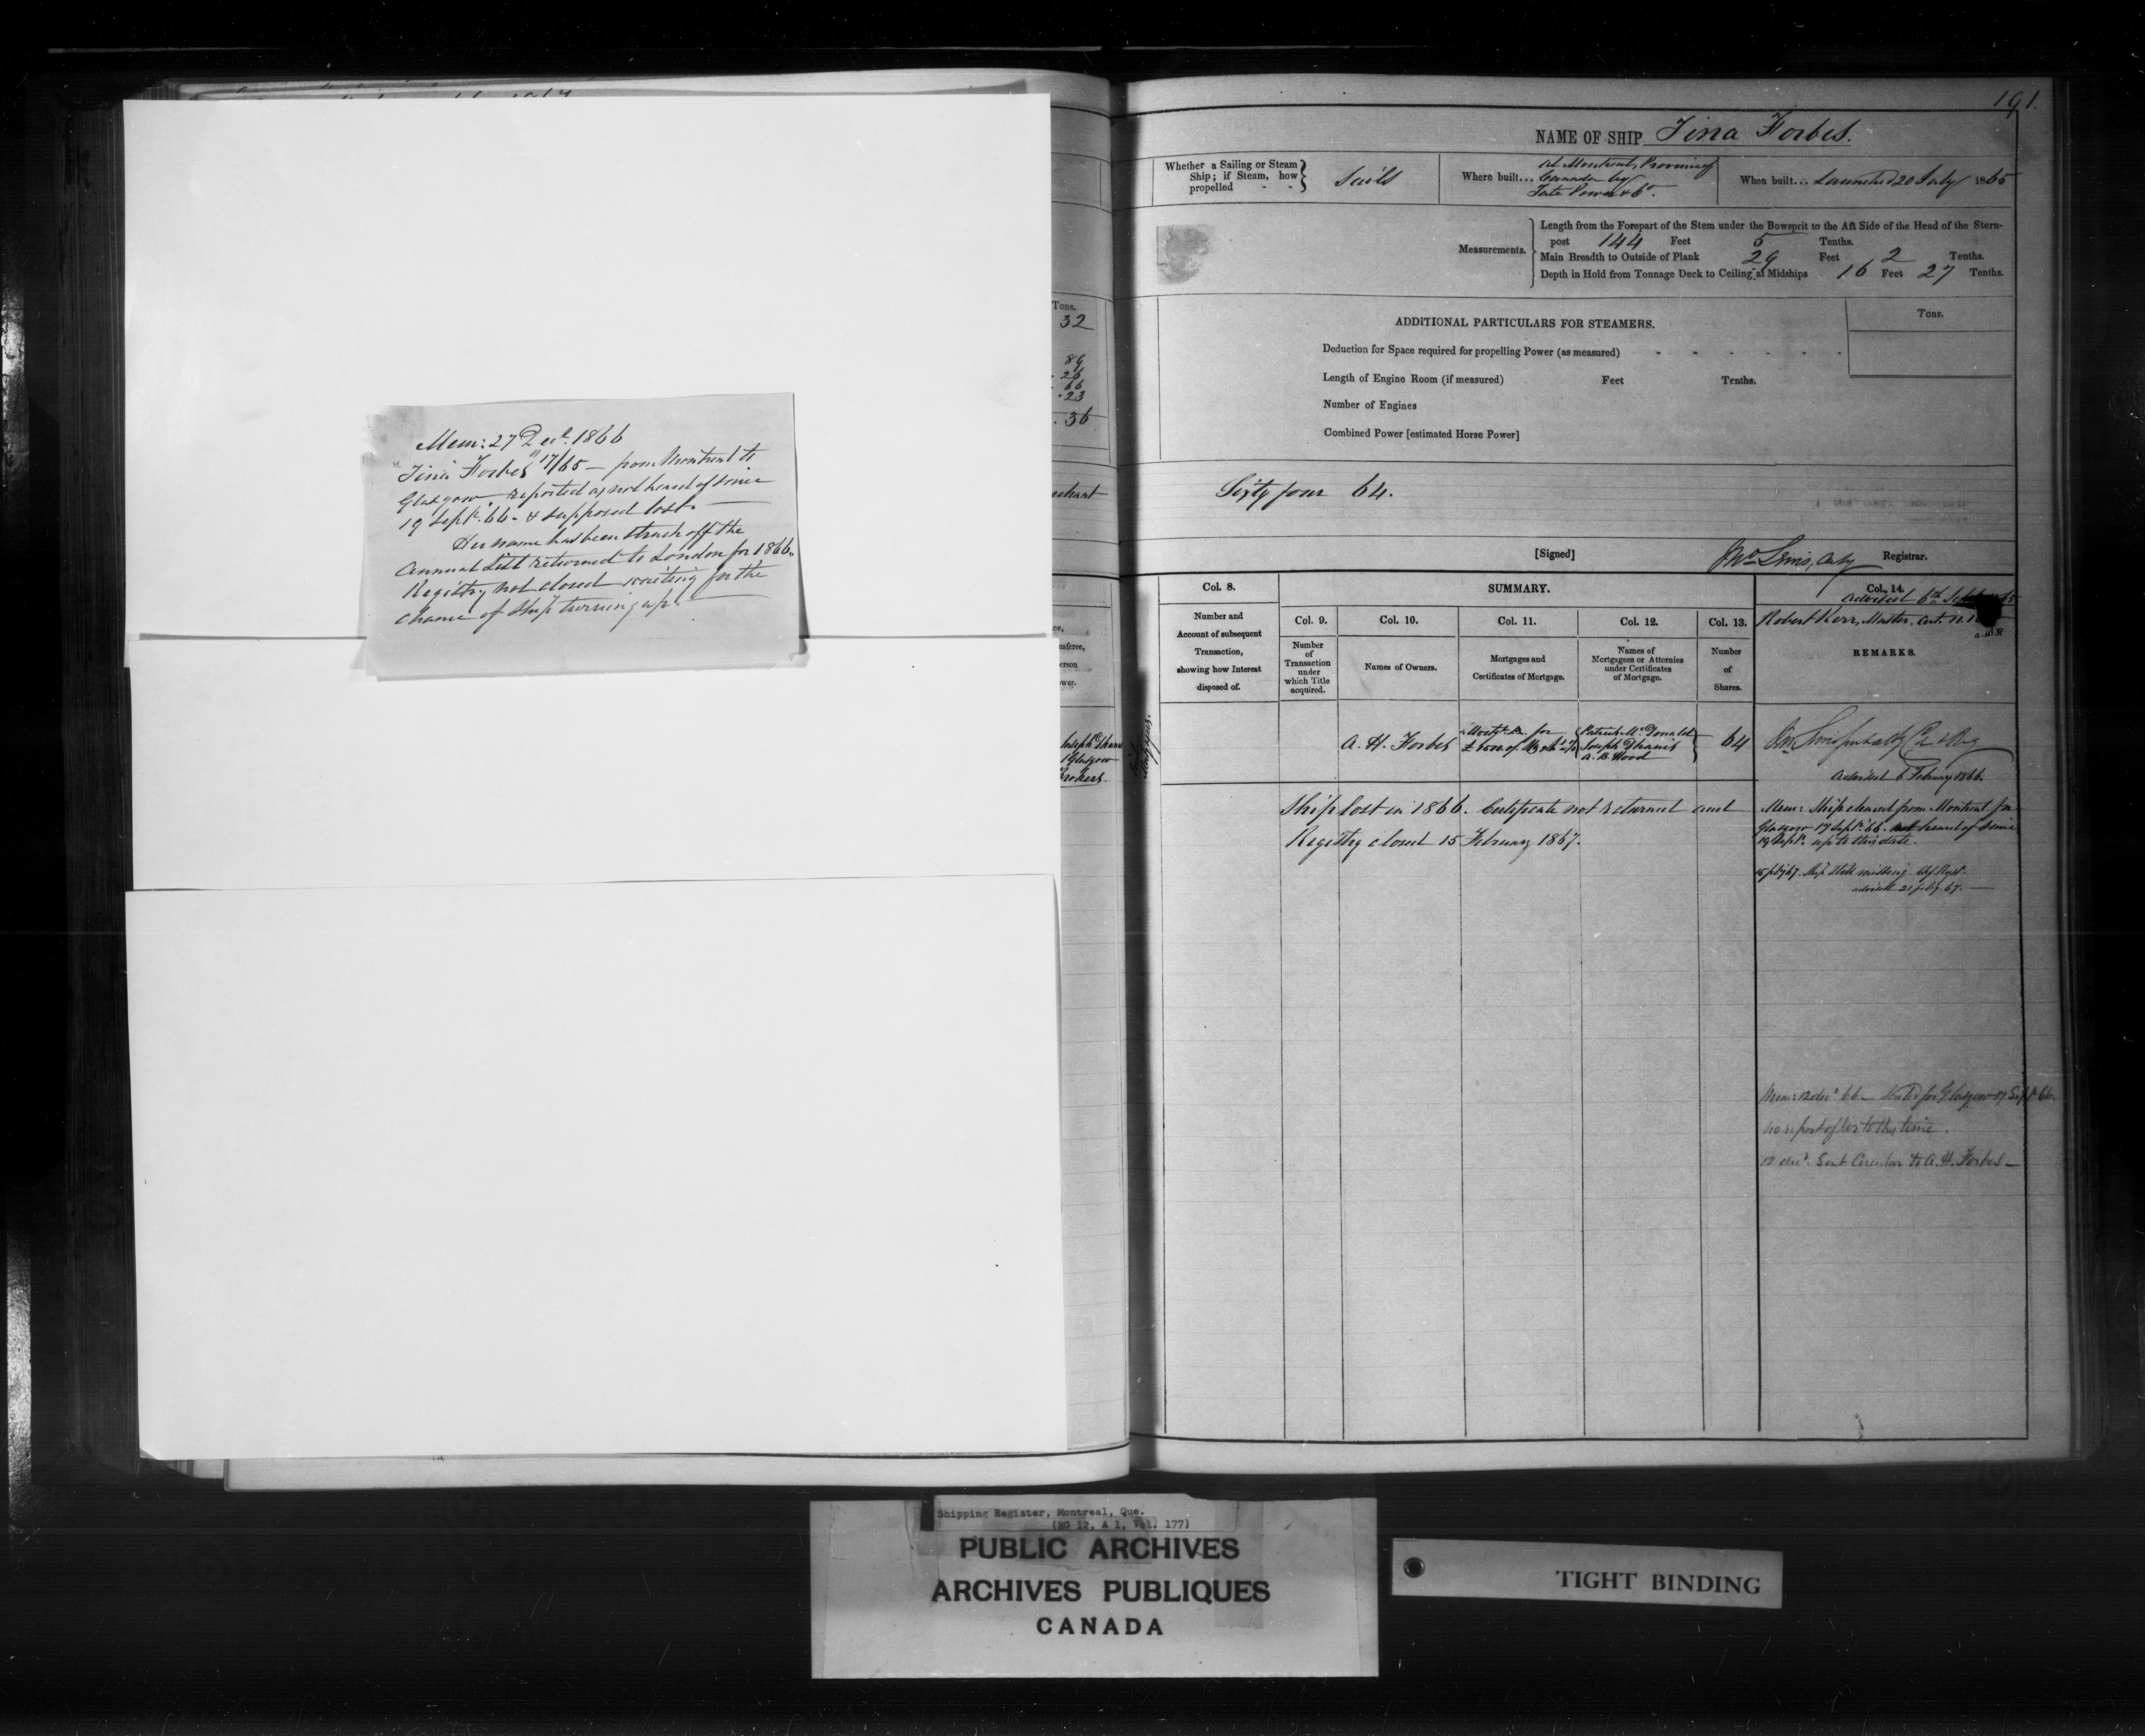 Mem: 27 Decr. 1866
"Tina Forbes" 17/65 — from Montreal to
Glasgow reported as not heard of since
19 Septr. 66 - & supposed lost. —
Her name has been struck off the
Annual List returned to London for 1866.
Registry not closed waiting for the
chance of Ship turning up. —
Tons.
32
89
26
66
.23
.36
191
NAME OF SHIP Tina Forbes.
Whether a Sailing or Steam Ship; if Steam, how propelled - - Sails
Where built... At Montreal, Province of
Canada by
Tate & Co.
When built... Launched 20 July 1865
Measurements.
Length from the Forepart of the Stem under the Bowsprit to the Aft Side of the Head of the Stern-
post 144 Feet 5 Tenths.
Main Breadth to Outside of Plank 29 Feet 2 Tenths.
Depth in Hold from Tonnage Deck to Ceiling at Midships 16 Feet 27 Tenths.
ADDITIONAL PARTICULARS FOR STEAMERS.
Tons.
Deduction for Space required for propelling Power (as measured) - - - - - - -
Length of Engine Room (if measured) Feet Tenths.
Number of Engines
Combined Power [estimated Horse Power]
Sixty four 64.
[Signed] Registrar.
Col. 8.
Number and
Account of subsequent
Transaction,
showing how Interest
disposed of.
SUMMARY.
Col. 9.
Number
of
Transaction
under
which Title
acquired.
Col. 10.
Names of Owners.
Col. 11.
Mortgages and
Certificates of Mortgage.
Col. 12.
Names of
Mortgagees or Attornies
under Certificates
of Mortgage.
Col. 13.
Number
of
Shares.
Col. 14.
advised 6th 65
Robert Kerr, Master. Cert. N.
REMARKS.
A. H. Forbes
Mortge. A. for
Patrick McDonald
Joseph
A. B. Wood
64
advised 6 February 1866.
Ship lost in 1866. Certificate not returned and
Registry closed 15 February 1867.
Mem: Ship cleared from Montreal for
Glasgow 17 Septr. 66. not heard of since
19 Septr. up to this date.
15 feby 67. Ship still missing.
advised 21 feby. 67. —
Mem: 12 decr. 66 — for Glasgow 17 Septr. 66.
no report of her to this time.
12 decr. Sent Circular to A. H. Forbes —
Shipping Register, Montreal, Que.
(RG 12, A 1, Vol. 177)
PUBLIC ARCHIVES
ARCHIVES PUBLIQUES
CANADA
TIGHT BINDING